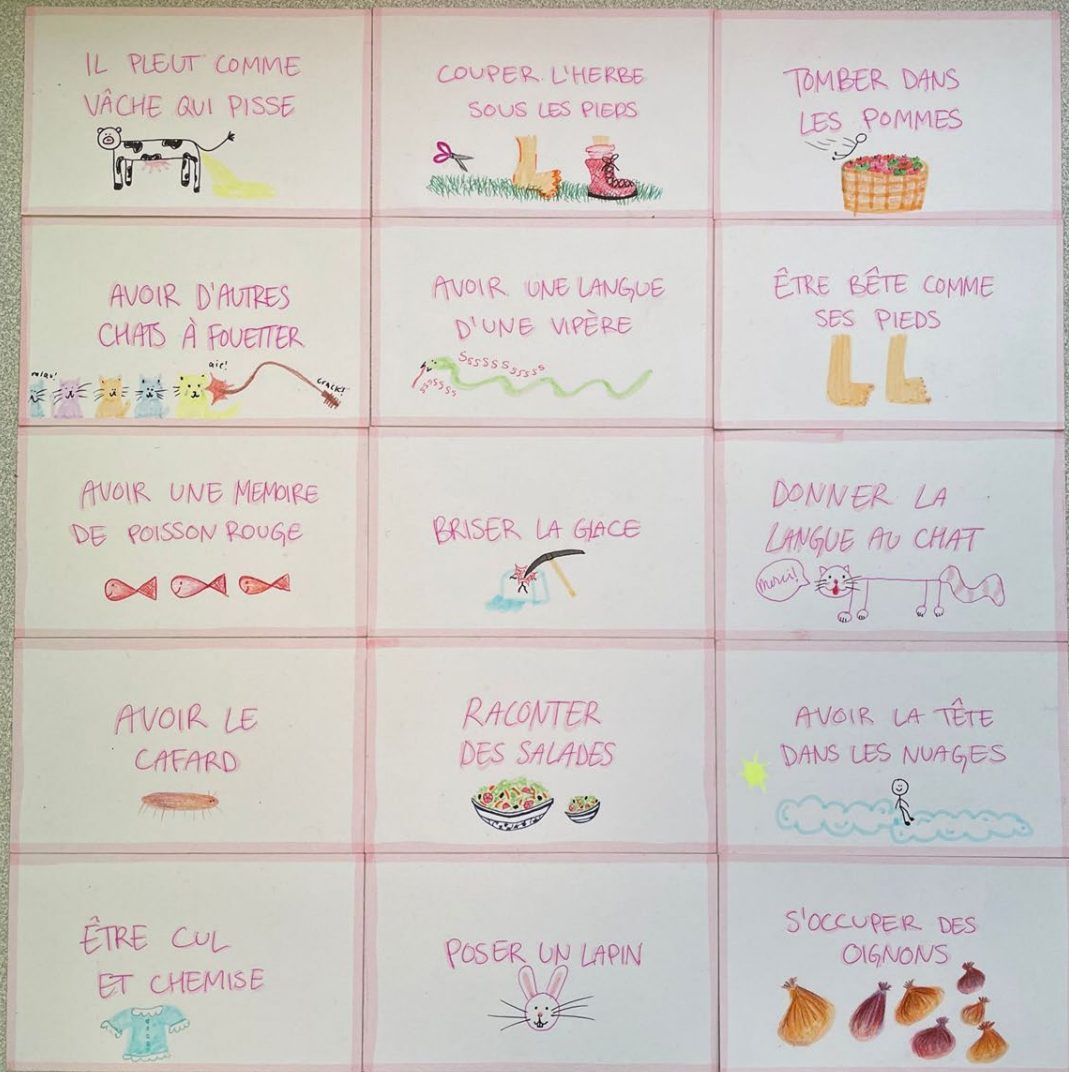 IL PLEUT COMME
VÂCHE QUI PISSE
COUPER L'HERBE
SOUS LES PIEDS
TOMBER DANS
LES POMMES
AVOIR D'AUTRES
CHATS À FOUETTER
aie!
CRACK!
AVOIR UNE LANGUE
D'UNE VIPÈRE
SSSSSSSSSSS
SSSSSS
ÊTRE BÊTE COMME
SES PIEDS
AVOIR UNE MEMOIRE
DE POISSON ROUGE
BRISER LA GLACE
DONNER LA
LANGUE AU CHAT
merci!
AVOIR LE
CAFARD
RACONTER
DES SALADES
AVOIR LA TÊTE
DANS LES NUAGES
ÊTRE CUL
ET CHEMISE
POSER UN LAPIN
S'OCCUPER DES
OIGNONS